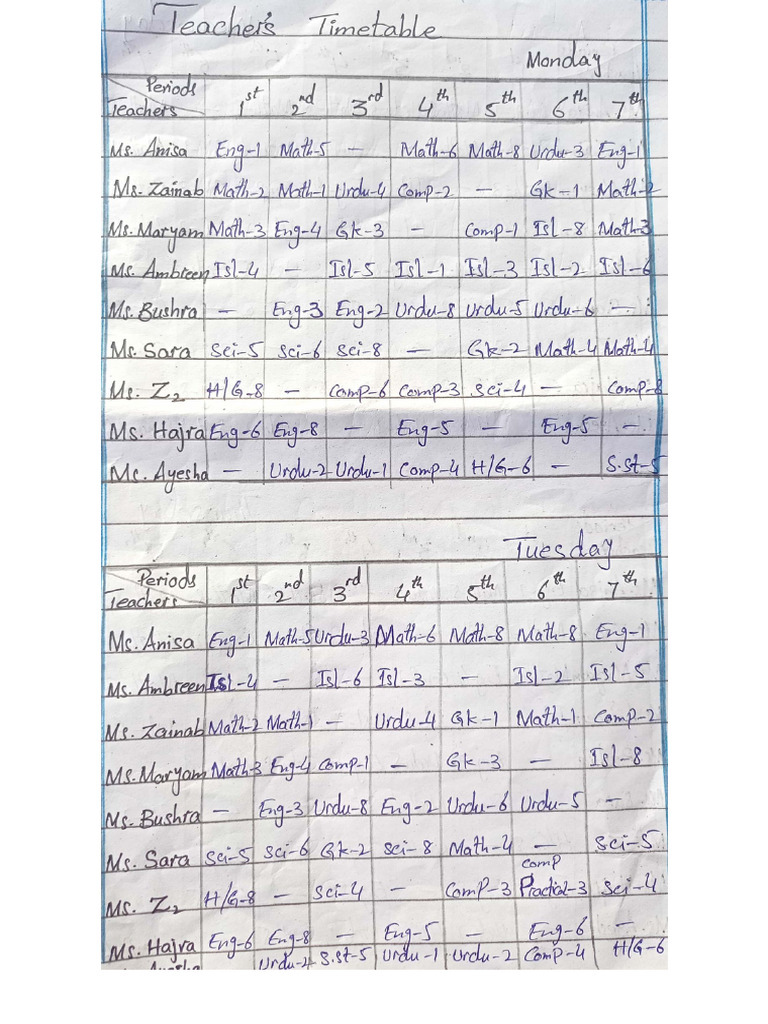 Teacher's Timetable
Monday
Periods
Teachers 1st 2nd 3rd 4th 5th 6th 7th
Ms. Anisa Eng-1 Math-5 - Math-6 Math-8 Urdu-3 Eng-1
Ms. Zainab Math-2 Math-1 Urdu-4 Comp-2 - Gk-1 Math-2
Ms. Maryam Math-3 Eng-4 Gk-3 - Comp-1 Isl-8 Math-3
Ms. Ambreen Isl-4 - Isl-5 Isl-1 Isl-3 Isl-2 Isl-6
Ms. Bushra - Eng-3 Eng-2 Urdu-8 Urdu-5 Urdu-6 -
Ms. Sara Sci-5 Sci-6 Sci-8 - Gk-2 Math-4 Math-4
Ms. Z2 H/G-8 - Comp-6 Comp-3 Sci-4 - Comp-8
Ms. Hajra Eng-6 Eng-8 - Eng-5 - Eng-5 -
Ms. Ayesha - Urdu-2 Urdu-1 Comp-4 H/G-6 - S.st-5
Tuesday
Periods
Teachers 1st 2nd 3rd 4th 5th 6th 7th
Ms. Anisa Eng-1 Math-5 Urdu-3 Math-6 Math-8 Math-8 Eng-1
Ms. Ambreen Isl-4 - Isl-6 Isl-3 - Isl-2 Isl-5
Ms. Zainab Math-2 Math-1 - Urdu-4 Gk-1 Math-1 Comp-2
Ms. Maryam Math-3 Eng-4 Comp-1 - Gk-3 - Isl-8
Ms. Bushra - Eng-3 Urdu-8 Eng-2 Urdu-6 Urdu-5 -
Ms. Sara Sci-5 Sci-6 Gk-2 Sci-8 Math-4 - Sci-5
Comp
Ms. Z2 H/G-8 - Sci-4 - Comp-3 Practial-3 Sci-4
Ms. Hajra Eng-6 Eng-8 - Eng-5 - Eng-6 -
Urdu-2 S.st-5 Urdu-1 Urdu-2 Comp-4 H/G-6